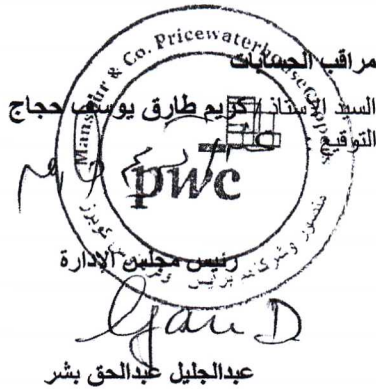 مراقب الحسابات
السيد الأستاذ / كريم طارق يوسف حجاج
التوقيع
Mansour & Co. PricewaterhouseCoopers
pwc
منصور وشركاه برايس وترهاوس كوبرز
رئيس مجلس الإدارة
عبدالجليل عبدالحق بشر